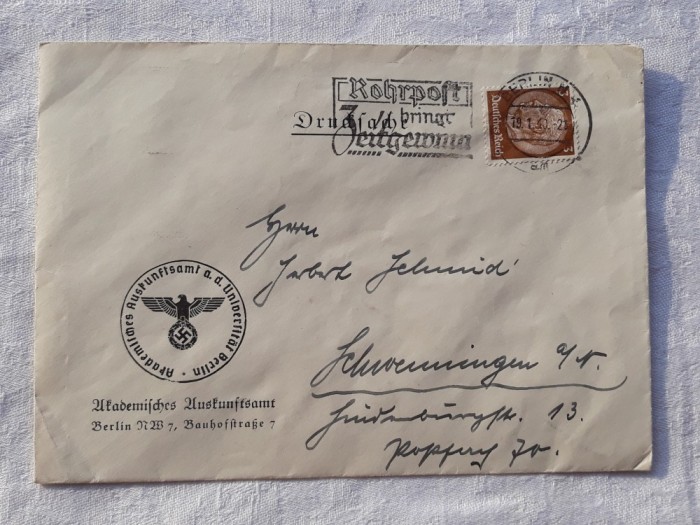 Rohrpost
bringt
Zeitgewinn
Drucksache
BERLIN
19.1.
Deutsches Reich
3
Herrn
Herbert Schmid
Schwenningen a/N.
Hindenburgstr. 13.
Postfach 70.
Akademisches Auskunftsamt a.d. Universität Berlin
Akademisches Auskunftsamt
Berlin NW 7, Bauhofstraße 7